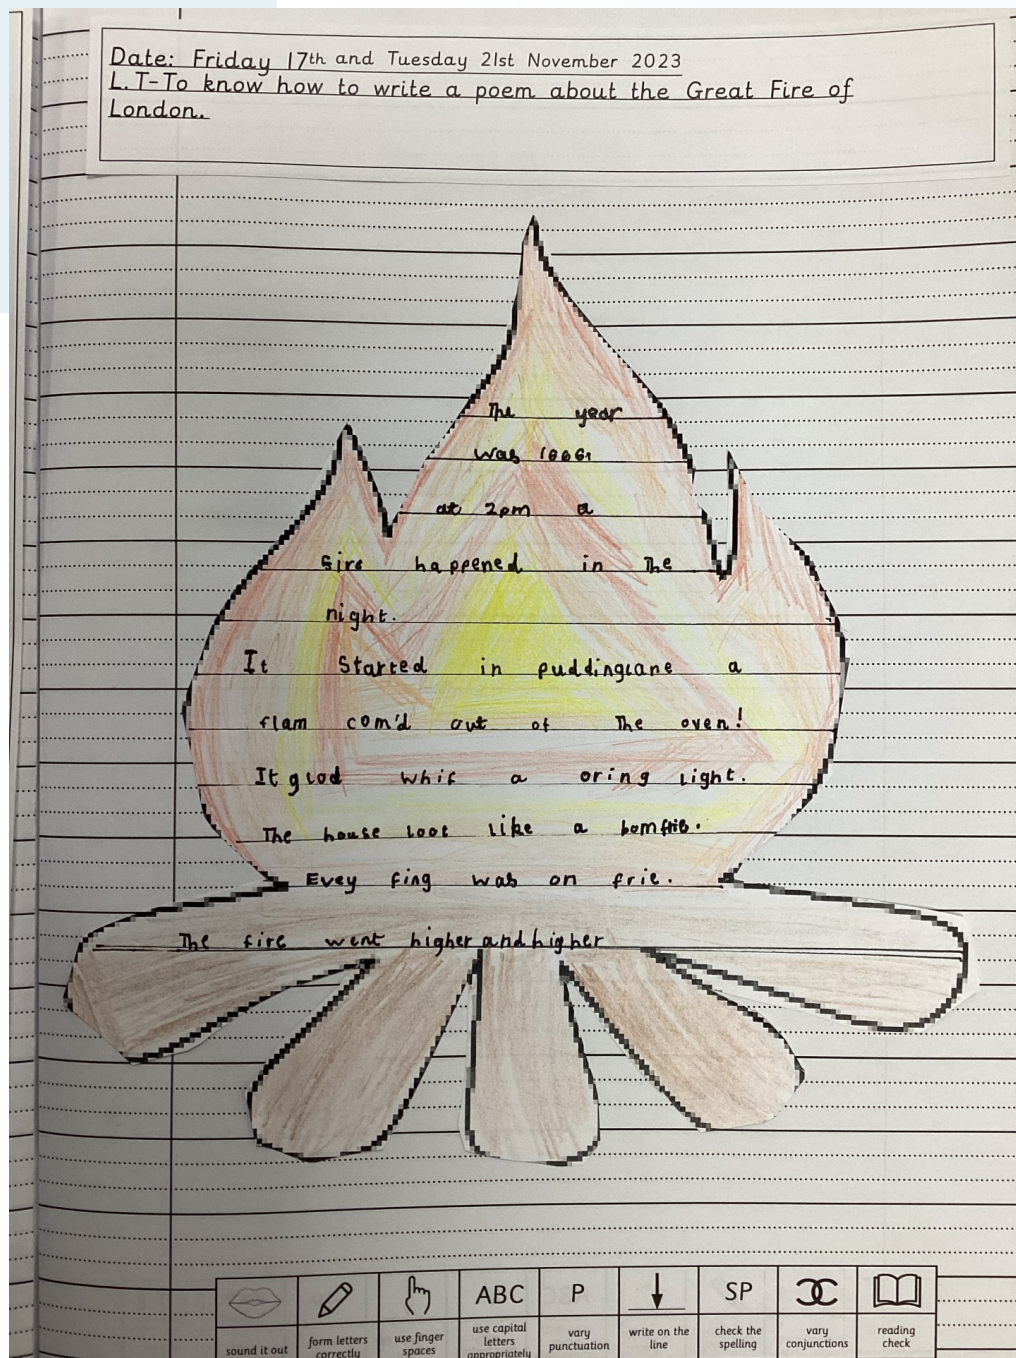 Date: Friday 17th and Tuesday 21st November 2023
L.T-To know how to write a poem about the Great Fire of
London.
The year
was 1666
at 2pm a
fire happened in the
night.
It Started in puddinglane a
flam com'd out of The oven!
It glod whif a oring light.
The house loot like a bomfrie.
Evey fing was on frie.
The fire went higher and higher
ABC P SP
sound it out form letters correctly use finger spaces use capital letters appropriately vary punctuation write on the line check the spelling vary conjunctions reading check